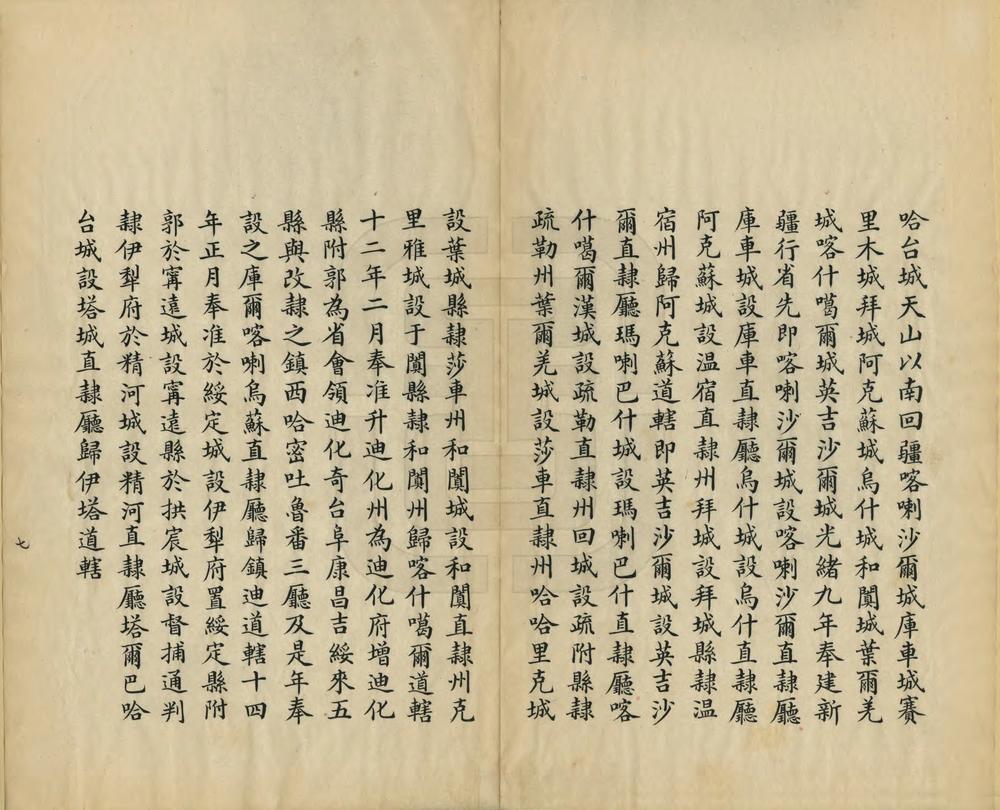 哈台城天山以南回疆喀喇沙爾城庫車城賽
里木城拜城阿克蘇城烏什城和闐城葉爾羌
城喀什噶爾城英吉沙爾城光緒九年奉建新
疆行省先即喀喇沙爾城設喀喇沙爾直隸廳
庫車城設庫車直隸廳烏什城設烏什直隸廳
阿克蘇城設温宿直隸州拜城設拜城縣隸温
宿州歸阿克蘇道轄即英吉沙爾城設英吉沙
爾直隸廳瑪喇巴什城設瑪喇巴什直隸廳喀
什噶爾漢城設疏勒直隸州回城設疏附縣隸
疏勒州葉爾羌城設莎車直隸州哈哈里克城
設葉城縣隸莎車州和闐城設和闐直隸州克
里雅城設于闐縣隸和闐州歸喀什噶爾道轄
十二年二月奉准升迪化州為迪化府增迪化
縣附郭為省會領迪化奇台阜康昌吉綏來五
縣與改隸之鎮西哈密吐魯番三廳及是年奉
設之庫爾喀喇烏蘇直隸廳歸鎮迪道轄十四
年正月奉准於綏定城設伊犁府置綏定縣附
郭於寗遠城設寗遠縣於拱宸城設督捕通判
隸伊犁府於精河城設精河直隸廳塔爾巴哈
台城設塔城直隸廳歸伊塔道轄
七